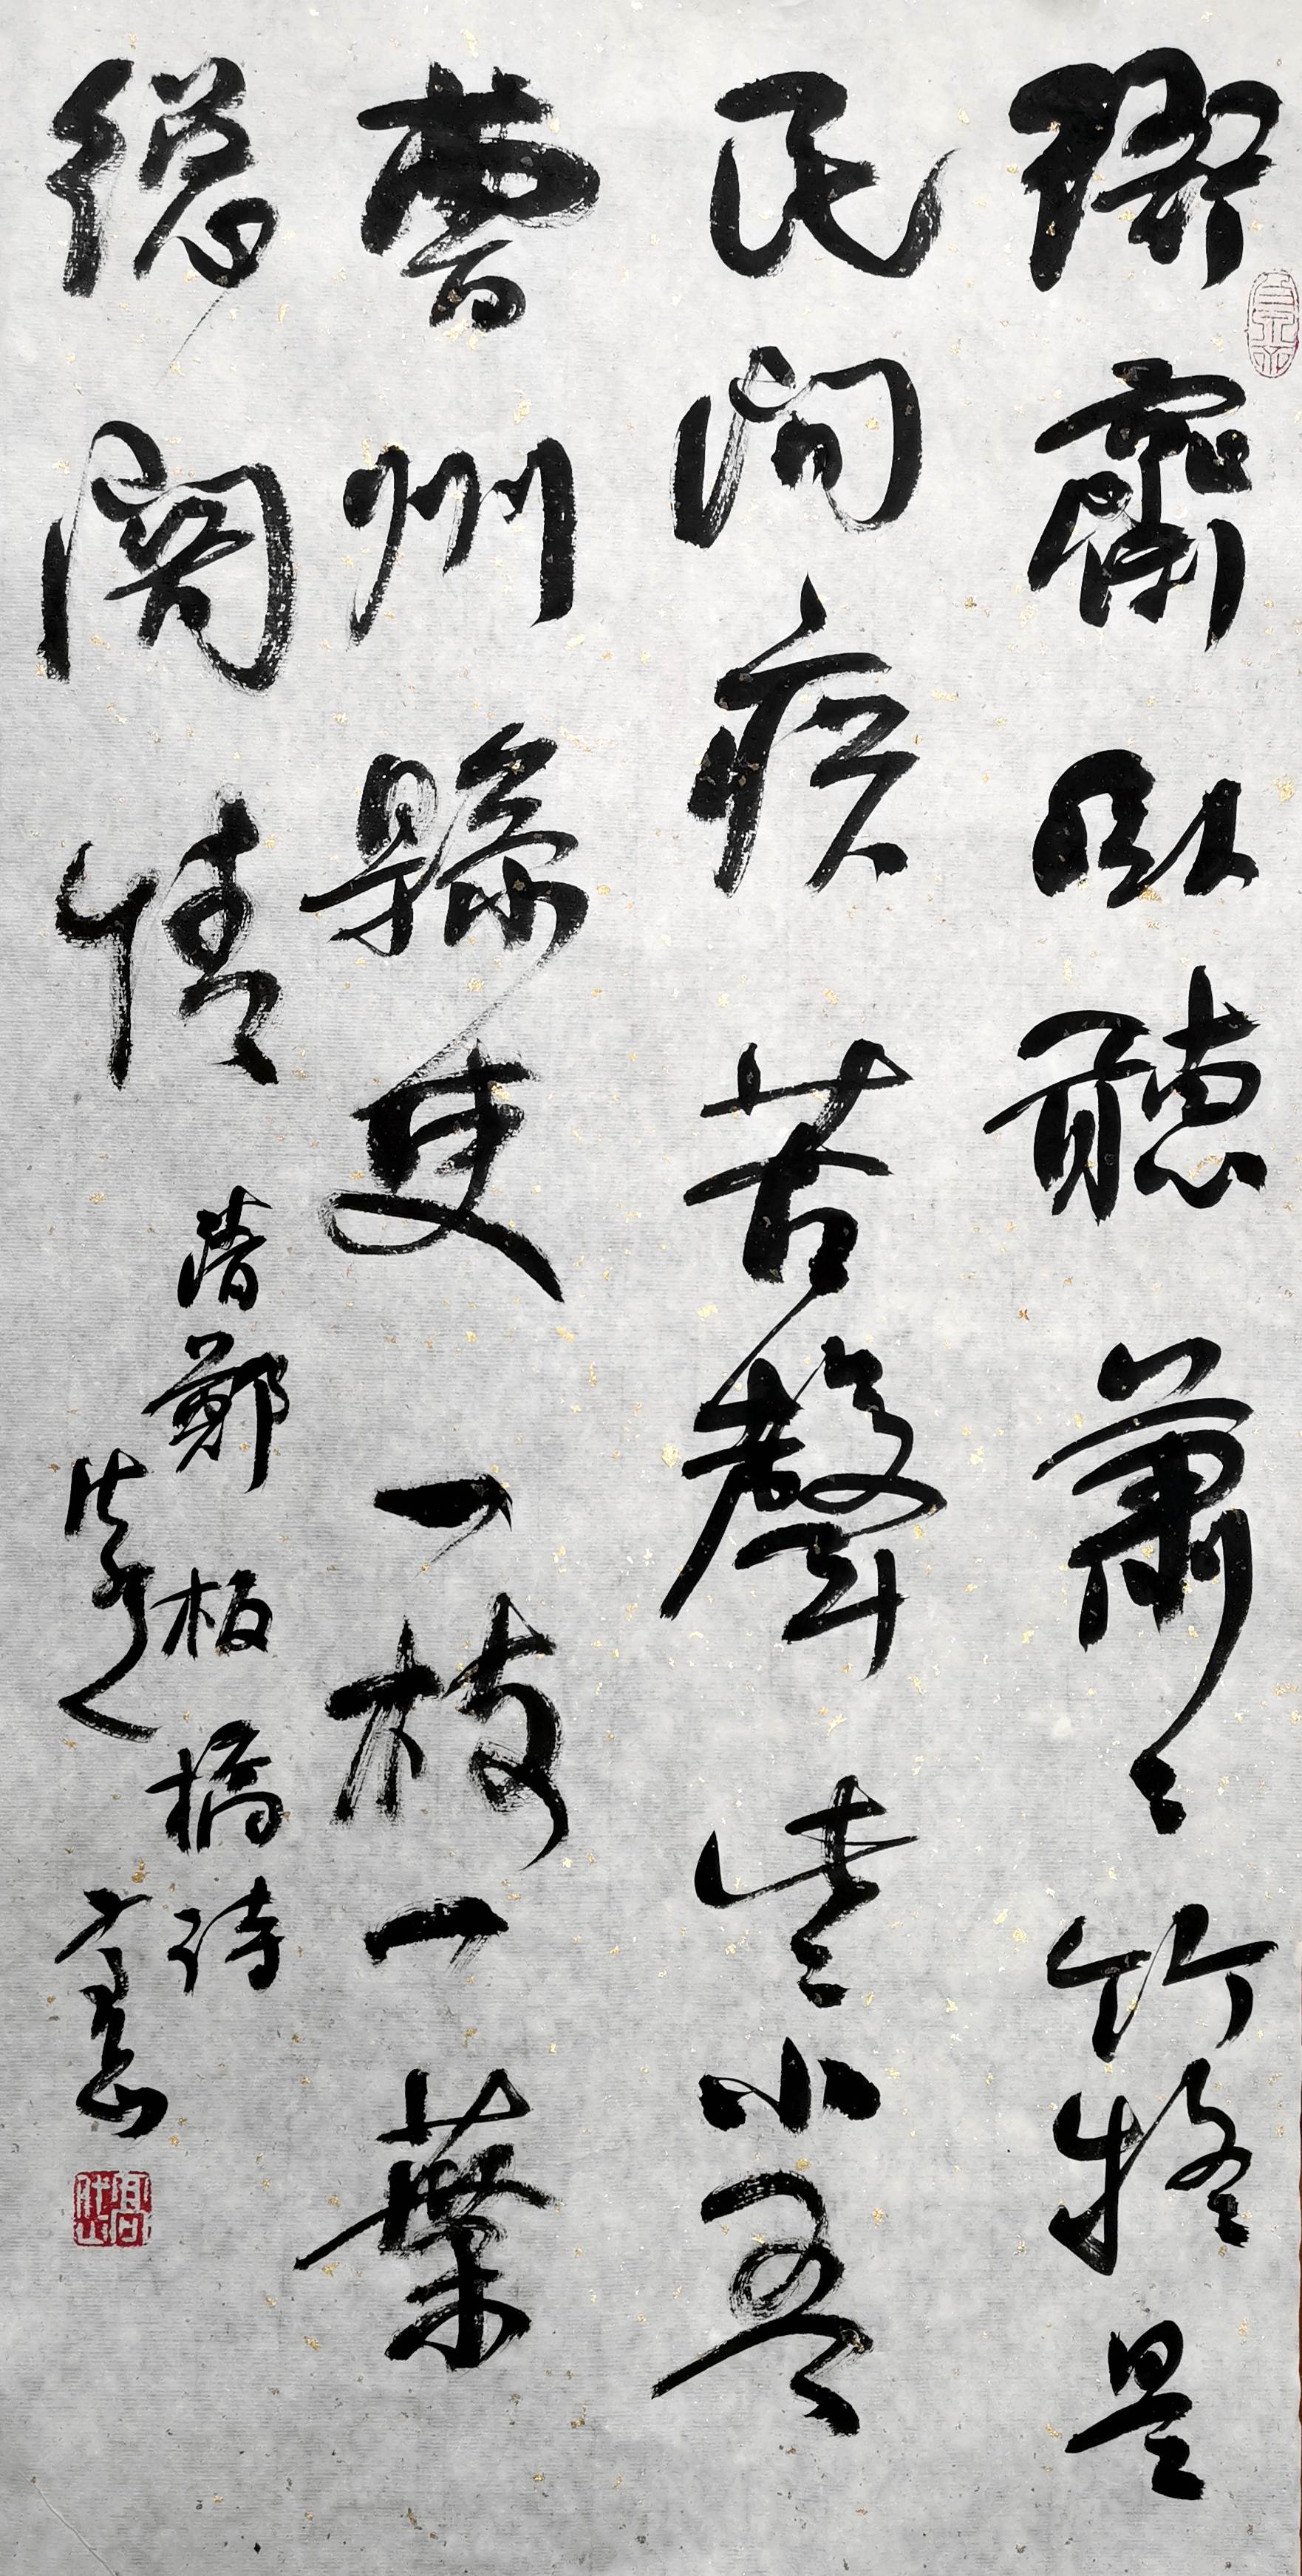 衙齋臥聽蕭々竹疑是
民間疾苦聲些小吾
曹州縣吏一枝一葉
總關情
清鄭板橋詩